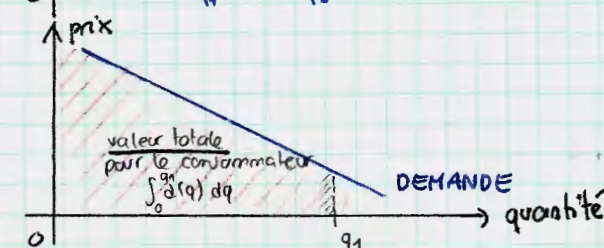 prix
valeur totale
pour le consommateur
∫₀^q₁ d(q) dq
DEMANDE
quantité
0
q₁